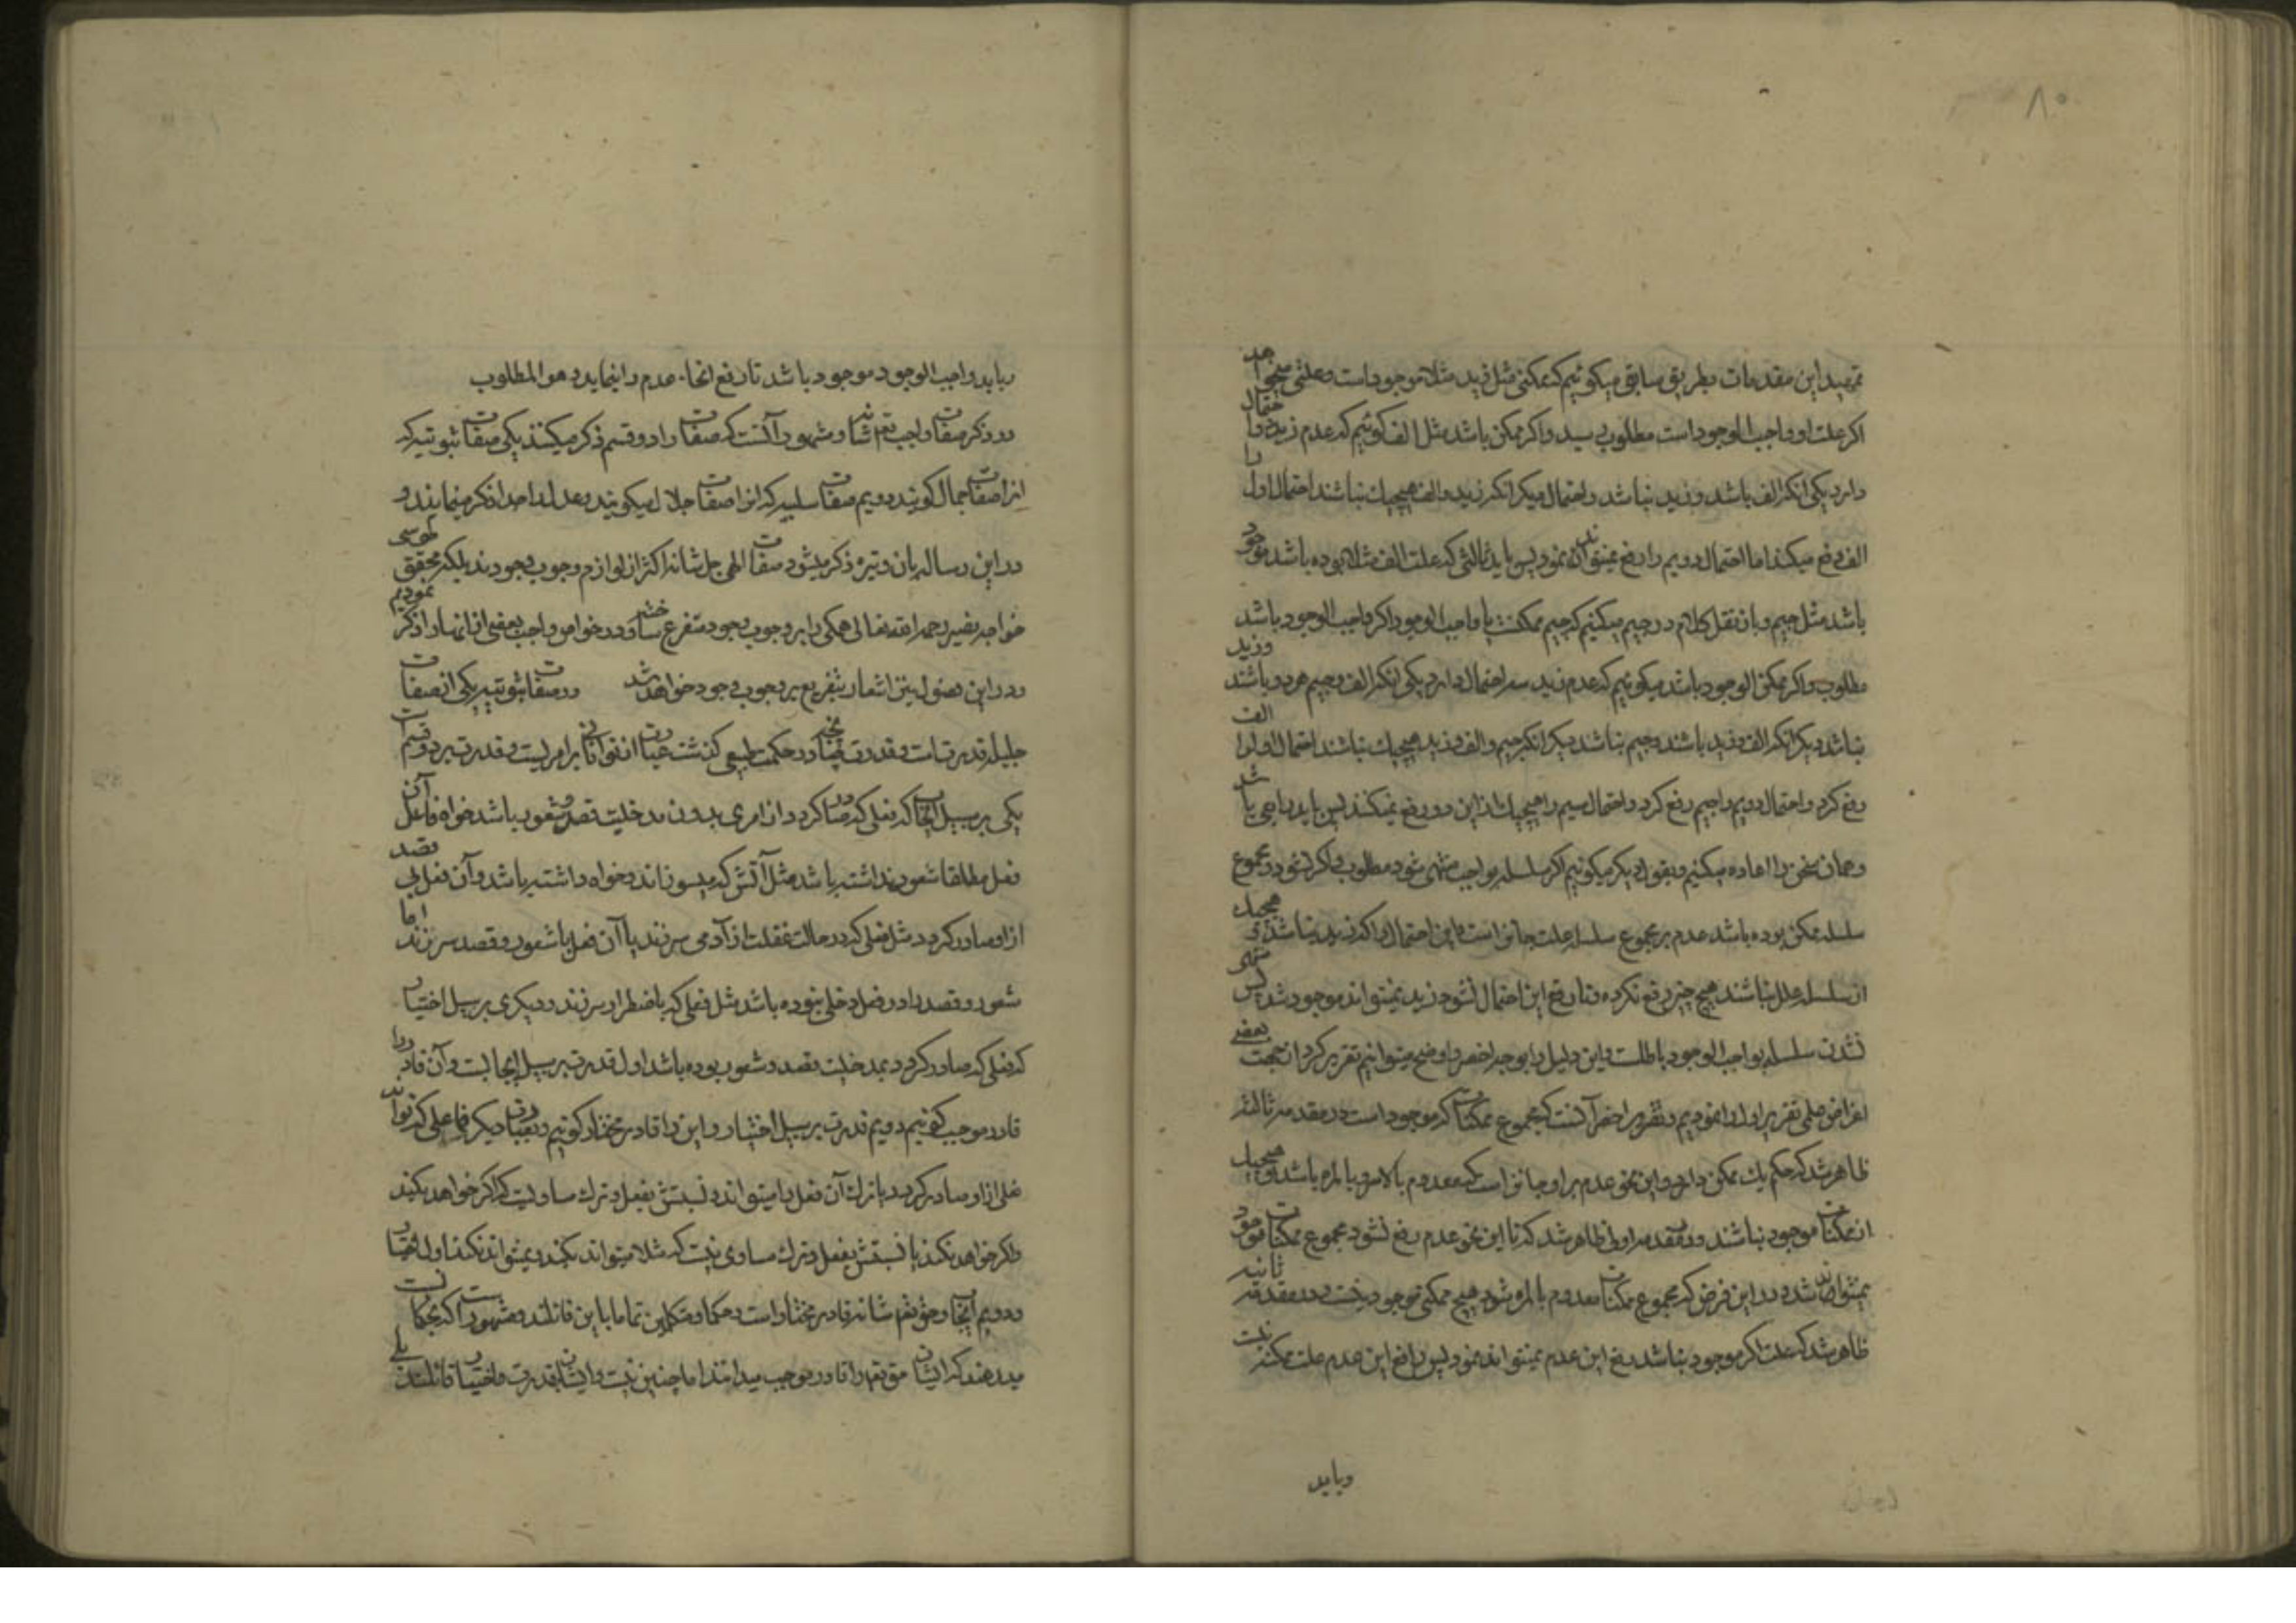 ۸۰
تمهید این مقدمات بطریق سابق میکوئیم که ممکنی مثل زید مثلا موجود است و علتی میخواهد
اکر علت او واجب الوجود است مطلوب رسید و اکر ممکن باشد مثل الف کوئیم که عدم زید دو احتمال
دارد یکی انکه الف باشد و زید نباشد و احتمال دیکر انکه زید و الف هیچیك نباشند احتمال اول را
الف رفع میکند اما احتمال دویم را رفع نمیتواند نمود پس باید ثالثی که علت الف مثلا بوده باشد موجود
باشد مثل جیم و باز نقل کلام در جیم میکنیم که جیم ممکنست یا واجب الوجود اکر واجب الوجود باشد
مطلوب و اکر ممکن الوجود باشد میکوئیم که عدم زید سه احتمال دارد یکی انکه الف و جیم هر دو باشند و زید
نباشد دیکر انکه الف و زید باشند و جیم نباشد دیکر انکه جیم و الف و زید هیچیك نباشند احتمال اول را الف
رفع کرد و احتمال دویم را جیم رفع کرد و احتمال سیم را هیچیك از این دو رفع نمیکند پس باید رابعی باشد
و همان سخن را اعاده میکنیم و بقول دیکر میکوئیم اکر سلسله بواجب منتهی شود مطلوب و اکر نشود و مجموع
سلسله ممکن بوده باشد عدم بر مجموع سلسله علت جایز است و این احتمال را که زید نباشد و هیچیك
از سلسله علل نباشند هیچ چیز رفع نکرده و تا رفع این احتمال نشود زید نمیتواند موجود شد پس منتهی
نشدن سلسله بواجب الوجود باطلست و این دلیل را بوجه اخصر و اوضح میتوانیم تقریر کرد از جهت بعضی
اغراض علمی تقریر اول را نمودیم و تقریر اخصر آنست که مجموع ممکنات که موجود است در مقدمه ثالثه
ظاهر شد که حکم یك ممکن دارد و این نحو عدم بر او جایز است که معدوم بالاسره بالمره باشد و هیچیك
از ممکنات موجود نباشند و در مقدمه اولی ظاهر شد که تا این نحو عدم رفع نشود مجموع ممکنات موجود
نمیتواند شد و در این فرض که مجموع ممکنات معدوم بالمره شود هیچ ممکنی موجود نیست و در مقدمه ثانیه
ظاهر شد که علت اکر موجود نباشد رفع این عدم نمیتواند نمود پس رافع این عدم علت ممکنه نیست
و باید
و باید واجب الوجود موجود باشد تا رفع انحاء عدم را بنماید و هو المطلوب
در ذکر صفات واجب تعم شانه و مشهور آنست که صفات را دو قسم ذکر میکنند یکی صفات ثبوتیه که
انرا صفات جمال کویند دویم صفات سلبیه که انرا صفات جلال میکویند و هر یك را جدا ذکر مینمایند و
در این رساله بان وتیره ذکر میشود صفات الهی جل شانه اکثر از لوازم وجوب وجودند بلکه محقق طوسی
خواجه نصیر رحمه الله تعالی همکی را بر وجوب وجود متفرع ساخته و در خواص واجب بعضی از انها را ذکر نمودیم
و در این فصول نیز اشعار بتفریع بر وجوب وجود خواهد شد در صفات ثبوتیه یکی از صفات
جلیله قدرتست و قدرت چنانچه در حکمت طبیعی کذشت عبارت از توانائی بر امریست و قدرت بر دو قسم است
یکی بر سبیل ایجاب که فعلی که صادر کردد از امری بدون مدخلیت قصد و شعور باشد خواه فاعل آن
فعل مطلقا شعور نداشته باشد مثل آتش که میسوزاند و خواه داشته باشد و آن فعل بی قصد
از او صادر کردد مثل فعلی که در حالت غفلت از آدمی سر زند یا آن فعل با شعور و قصد سر زند اما
شعور و قصد را در فعل دخلی نبوده باشد مثل فعلی که باضطرار سر زند و دیکری بر سبیل اختیار
که فعلی که صادر کردد بمدخلیت قصد و شعور بوده باشد اول قدرت بر سبیل ایجابست و آن قادر را
قادر موجب کوئیم دویم قدرت بر سبیل اختیار و این را قادر مختار کوئیم و بعبارت دیکر فاعلی که تواند
فعلی از او صادر کردد یا ترك آن فعل را میتواند و نسبتش بفعل و ترك مساویست که اکر خواهد بکند
و اکر خواهد نکند یا نسبتش بفعل و ترك مساوی نیست که مثلا میتواند بکند و نمیتواند نکند اول اختیار
و دویم ایجاب و حق تعم شانه قادر مختار است و حکما و متکلمین تماما باین قائلند و مشهور است که بحکما نسبت
میدهند که ایشان حق تعم را قادر موجب میدانند اما چنین نیست و ایشان بقدرت و اختیار قائلند بلی